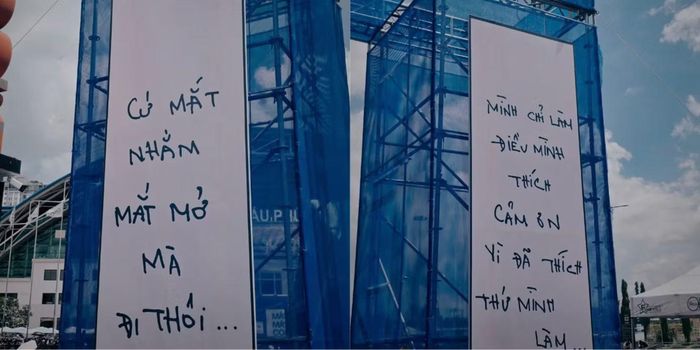 CỨ MẮT
NHẮM
MẮT MỞ
MÀ
ĐI THÔI...
MÌNH CHỈ LÀM
ĐIỀU MÌNH
THÍCH
CẢM ƠN
VÌ ĐÃ THÍCH
THỨ MÌNH
LÀM...